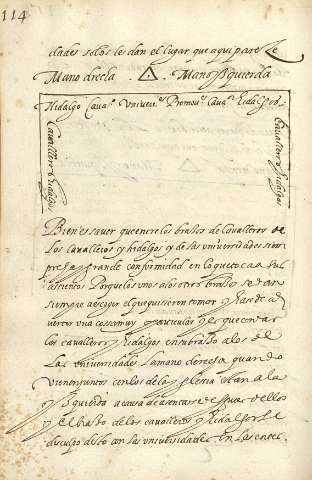 114
dades solos le dan el lugar que aqui pareze
Mano drecha . △ . Mano ysquierda
Hidalgo Cavaº. Univerº. Promovº. Cavaº. Hidalgo
Cavalleros hidalgos
Cavalleros hidalgos
Bien es saver que entre los brassos de Cavalleros
los cavalleros y hidalgos y de las universidades siem
pre ay grande conformidad en lo que toca a sus
asientos Porque los unos a los otros brassos se dan
siempre a escoger el que quisieren tomar y ha se de ad
vertir una cossa muy particular y es que en dar
los cavalleros y hidalgos en su brasso a los de
Las universidades la mano derecha quando
vienen juntos con los de la yglesia estan a la
ysquierda a causa de asentarse despues dellos
y el brasso de los cavalleros y hidalgos
con las universidades en las